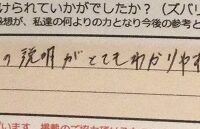 けられていかがでしたか？（ズバリ
感想が、私達の何よりの力となり今後の参考と
の説明がとてもわかりやす
います。掲載のご協力